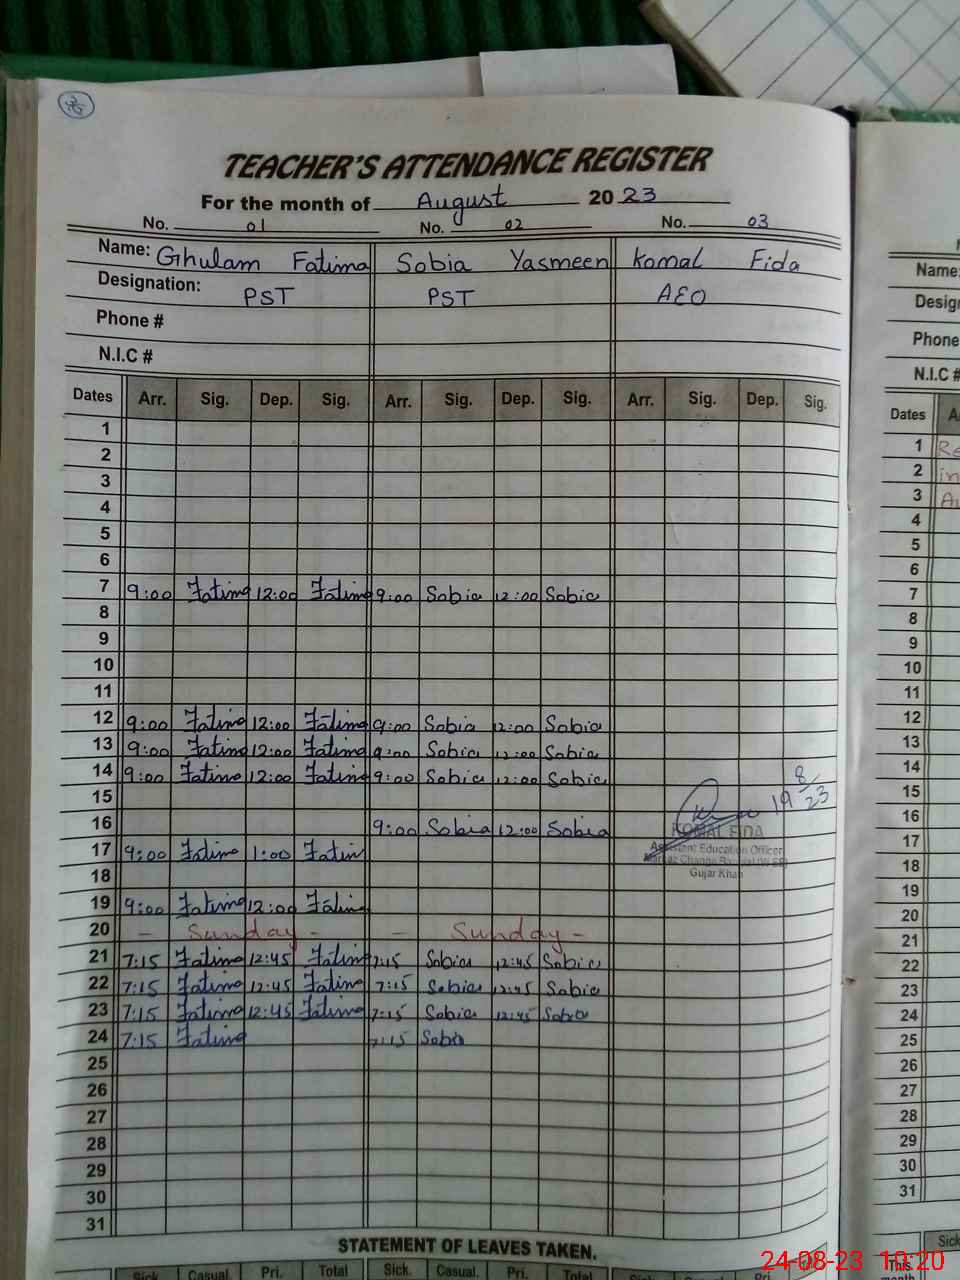 TEACHER'S ATTENDANCE REGISTER
For the month of August 2023
No. 01 No. 02 No. 03
Name: Ghulam Fatima Sobia Yasmeen Komal Fida
Designation: PST PST AEO
Phone #
N.I.C #
Dates Arr. Sig. Dep. Sig. Arr. Sig. Dep. Sig. Arr. Sig. Dep. Sig.
1
2
3
4
5
6
7 9:00 Fatima 12:00 Fatima 9:00 Sobia 12:00 Sobia
8
9
10
11
12 9:00 Fatima 12:00 Fatima 9:00 Sobia 12:00 Sobia
13 9:00 Fatima 12:00 Fatima 9:00 Sobia 12:00 Sobia
14 9:00 Fatima 12:00 Fatima 9:00 Sobia 12:00 Sobia
15 19/8/23
16 9:00 Sobia 12:00 Sobia
KOMAL FIDA
Assistant Education Officer
Markaz Changa
Gujar Khan
17 9:00 Fatima 1:00 Fatim
18
19 9:00 Fatima 12:00 Fatima
20 - Sunday - - Sunday -
21 7:15 Fatima 12:45 Fatima 7:15 Sobia 12:45 Sobia
22 7:15 Fatima 12:45 Fatima 7:15 Sobia 12:45 Sobia
23 7:15 Fatima 12:45 Fatima 7:15 Sobia 12:45 Sobia
24 7:15 Fatima 7:15 Sobia
25
26
27
28
29
30
31
STATEMENT OF LEAVES TAKEN.
Sick. Casual. Pri. Total Sick. Casual. Pri. Total Sick. Casual. Pri.
Name:
Desig
Phone
N.I.C #
Dates A
1 Re
2 in
3 Au
4
5
6
7
8
9
10
11
12
13
14
15
16
17
18
19
20
21
22
23
24
25
26
27
28
29
30
31
Sick
This
month
24-08-23 10:20